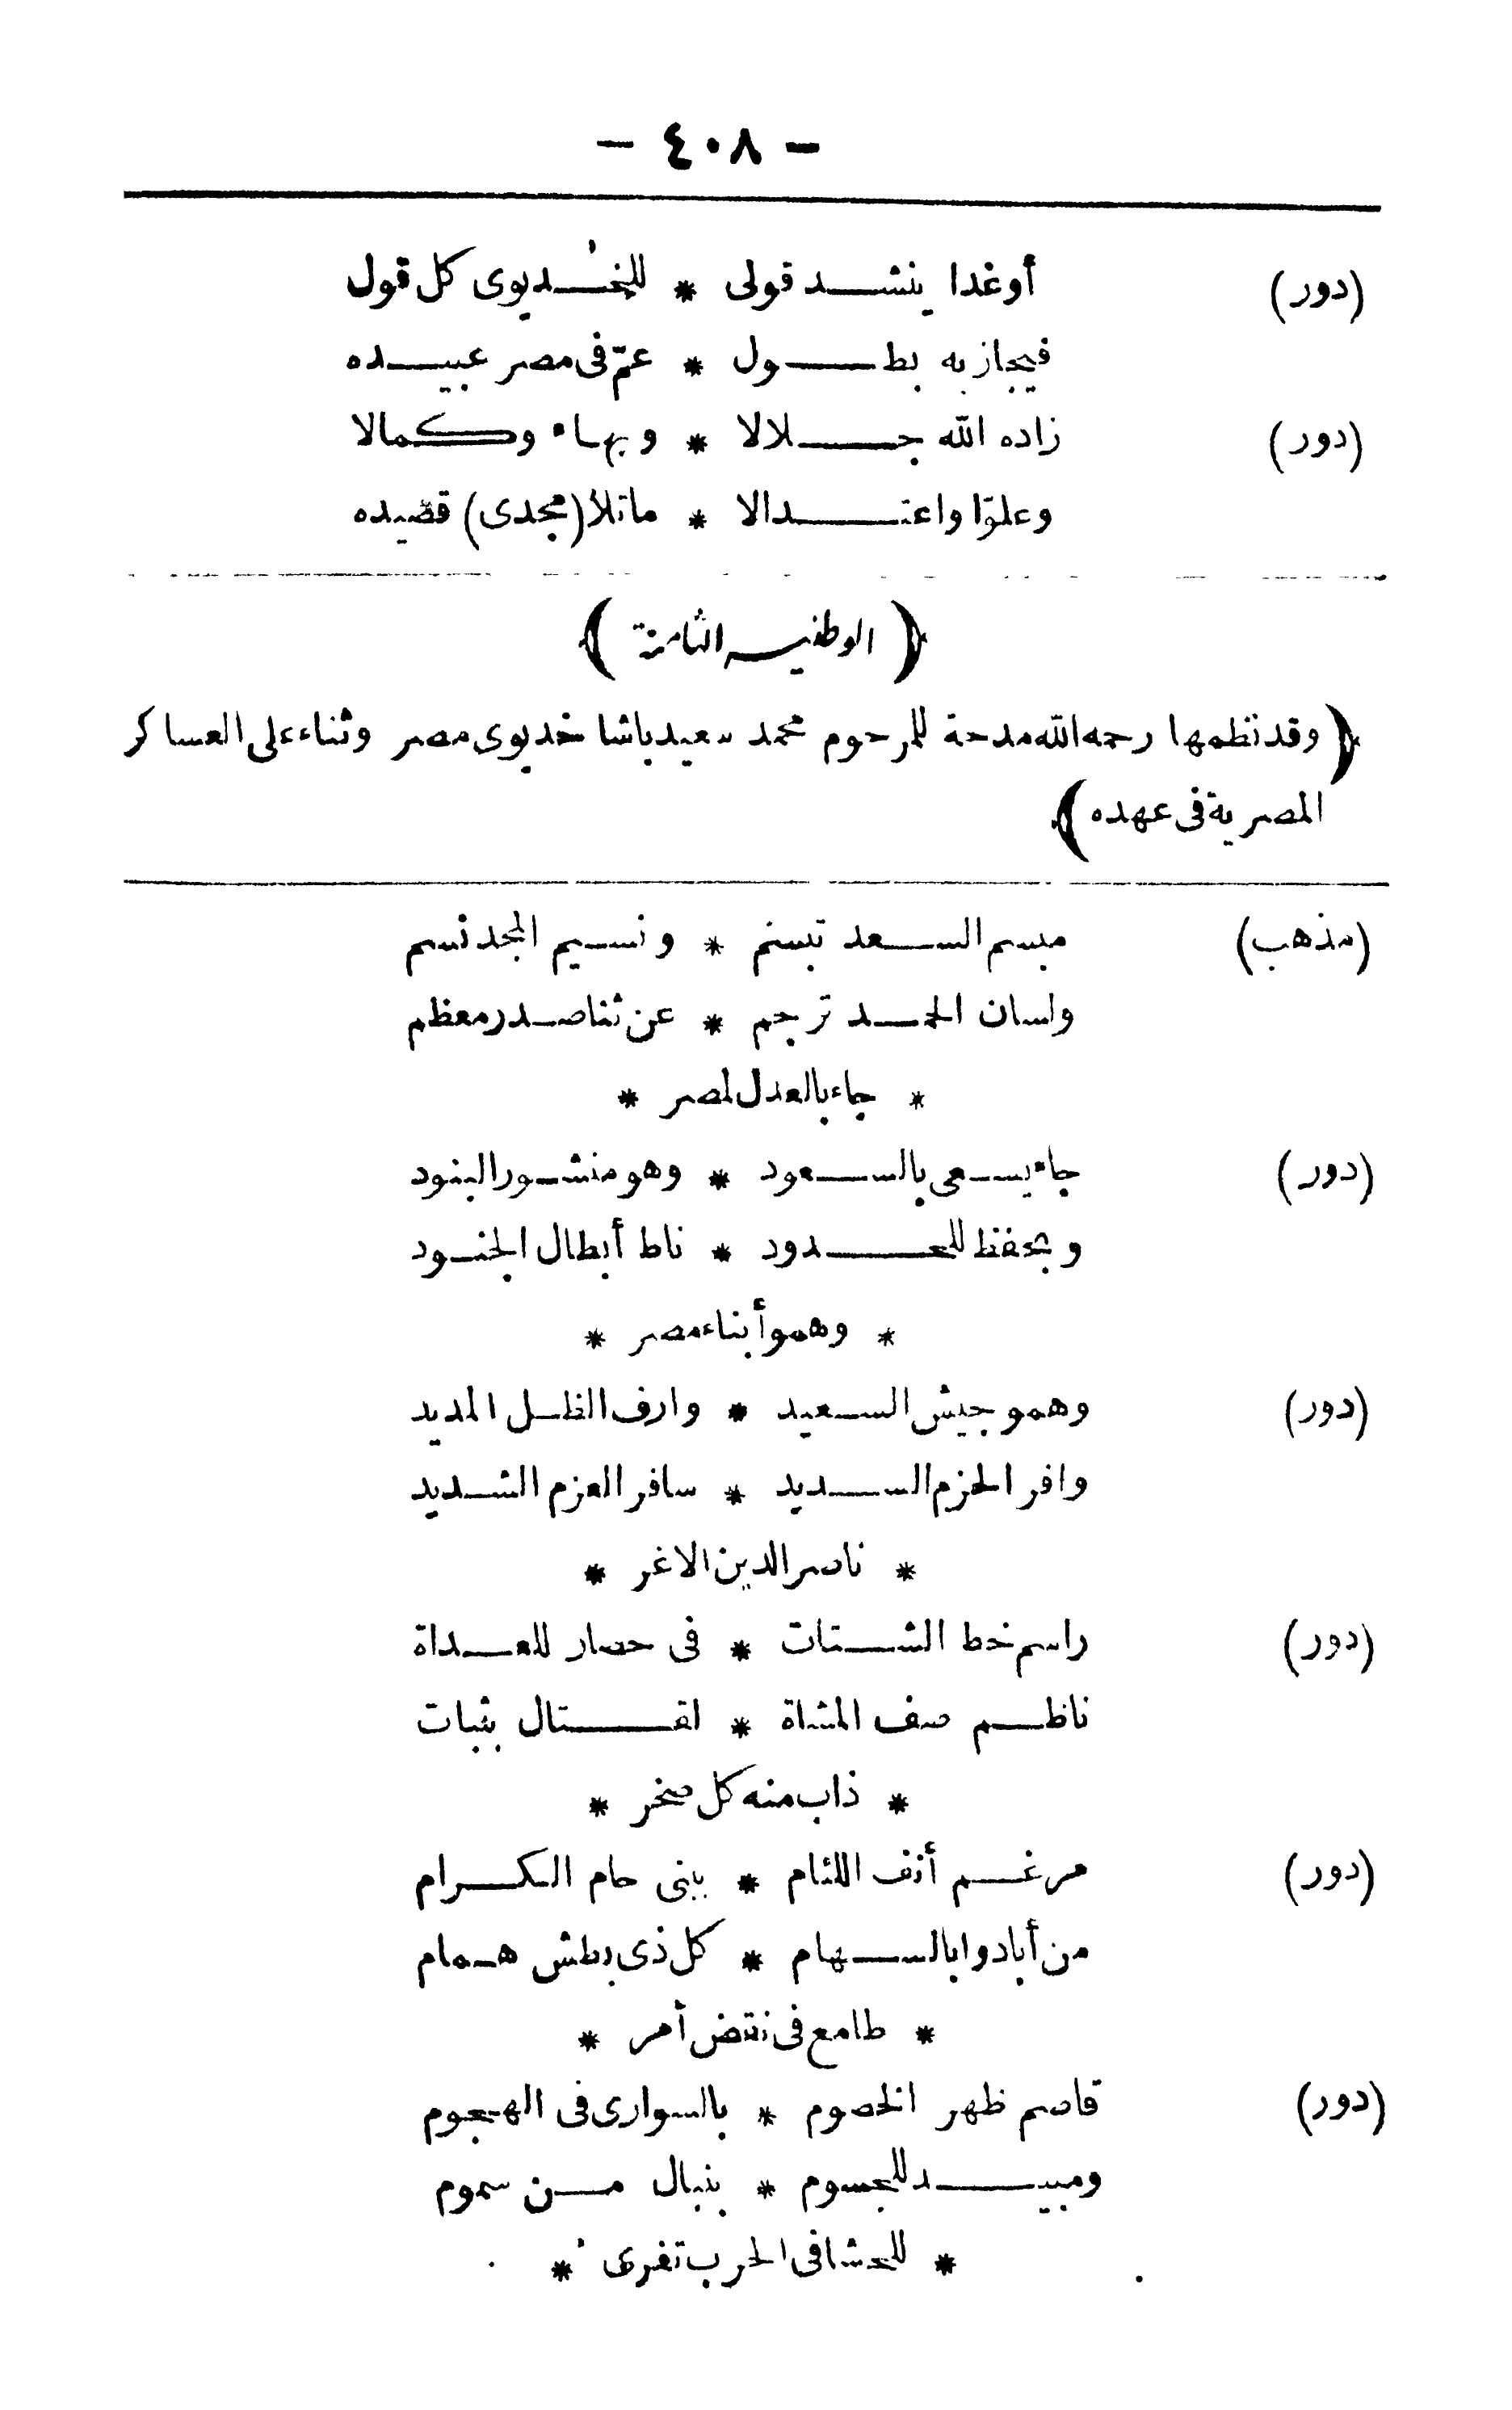 - ٤٠٨ -
(دور) أوغدا ينشد قولى * للخديوى كل قول
فيجازيه بطول * عمّ فى مصر عبيده
(دور) زاده الله جلالا * وبهاء وكمالا
وعلوّا واعتدالا * ماتلا (مجدى) قصيده
﴿ الوطنيه الثامنة ﴾
﴿ وقد نظمها رحمه الله مدحة للمرحوم محمد سعيد باشا خديوى مصر وثناء على العساكر
المصرية فى عهده ﴾
(مذهب) مبسم السعد تبسم * ونسيم المجد نسم
ولسان الحمد ترجم * عن ثنا صدر معظم
* جاء بالعدل لمصر *
(دور) جاء يسعى بالسعود * وهو منشور البنود
وبحفظ للحدود * ناط أبطال الجنود
* وهمو أبناء مصر *
(دور) وهمو جيش السعيد * وارف الظل المديد
وافر الحزم السديد * سافر العزم الشديد
* ناصر الدين الاغر *
(دور) راسم خط الشتات * فى حصار للعداة
ناظم صف المشاة * لقتال بثبات
* ذاب منه كل صخر *
(دور) مرغم أنف اللئام * ببنى حام الكرام
من أبادوا بالسهام * كل ذى بطش همام
* طامع فى نقض أمر *
(دور) قاصم ظهر الخصوم * بالسوارى فى الهجوم
ومبيد للجسوم * بنبال من سموم
* للحشا فى الحرب تفرى *